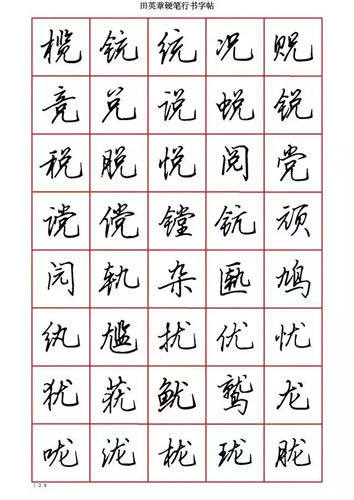 田英章硬笔行书字帖
榄 铳 统 况 贶
竞 兑 说 蜕 锐
税 脱 悦 阅 党
谠 傥 镋 钪 颃
闶 轨 杂 匦 鸠
纨 尴 扰 优 忧
犹 莸 鱿 鹫 龙
咙 泷 栊 珑 胧